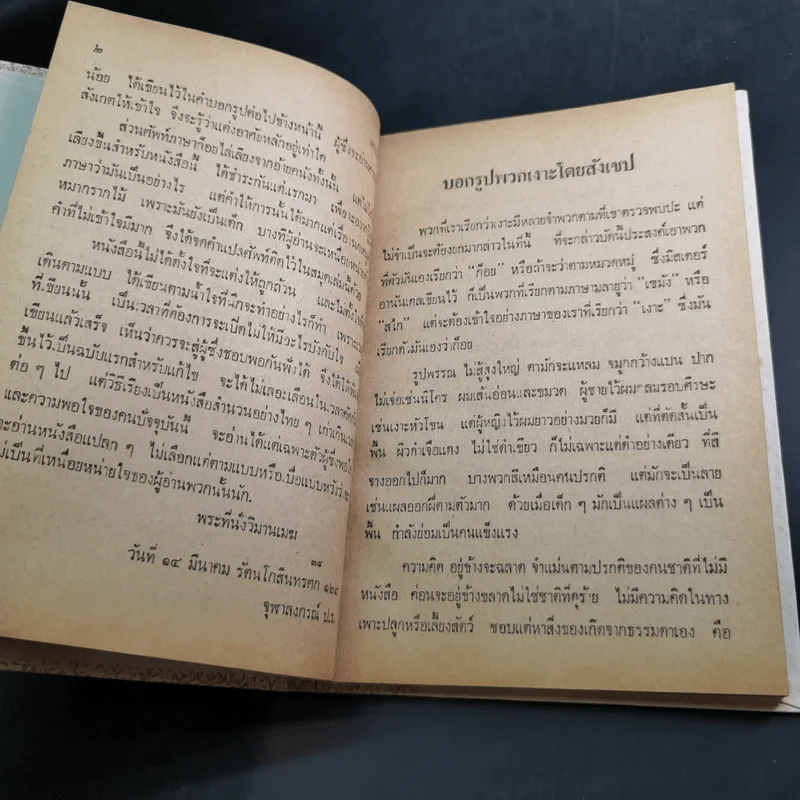 ๒
น้อย ได้เขียนไว้ในคำบอกรูปต่อไปข้างหน้านี้ ผู้ซึ่งจะอ่าน
สังเกตให้เข้าใจ จึงจะรู้ว่าแต่งอาศัยหลักอยู่เท่าใด
ส่วนศัพท์ภาษาก๊อยไล่เลียงจากอ้ายคนังทั้งนั้น แต่
เลียงขึ้นสำหรับหนังสือนี้ ได้ชำระกันแต่แรกมา เพื่อจะ
ภาษาว่ามันเป็นอย่างไร แต่คำให้การนั้นได้มากแต่เรื่อง
หมากรากไม้ เพราะมันยังเป็นเด็ก บางทีผู้อ่านจะเหนื่อยหน่าย
คำที่ไม่เข้าใจมีมาก จึงได้จดคำแปลศัพท์ติดไว้ในสมุดเล่มนี้ด้วย
หนังสือนี้ไม่ได้ตั้งใจที่จะแต่งให้ถูกถ้วน และไม่ตั้งใจ
เดินตามแบบ ได้เขียนตามน้ำใจที่นึกจะทำอย่างไรก็ทำ เพราะเวลา
ที่เขียนนั้น เป็นเวลาที่ต้องการจะเปิดไม่ให้มีอะไรบังคับใจ เมื่อ
เขียนแล้วเสร็จ เห็นว่าควรจะสู่ผู้ซึ่งชอบพอกันฟังได้ จึงได้ให้
ขึ้นไว้เป็นฉบับแรกสำหรับแก้ไข จะได้ไม่เลอะเลือนในเวลา
ต่อ ๆ ไป แต่วิธีเรียงเป็นหนังสือสำนวนอย่างไทย ๆ เก่าเกินเวลา
และความพอใจของคนปัจจุบันนี้ จะอ่านได้แต่เฉพาะตัวผู้ซึ่งพอใจ
จะอ่านหนังสือแปลก ๆ ไม่เลือกแต่ตามแบบหรือเบื่อแบบหวังว่าจะ
ไม่เป็นที่เหนื่อยหน่ายใจของผู้อ่านพวกนั้นนัก.
พระที่นั่งวิมานเมฆ
วันที่ ๑๔ มีนาคม รัตนโกสินทรศก ๓๘ ๑๒๔
จุฬาลงกรณ์ ป.ร.
บอกรูปพวกเงาะโดยสังเขป
พวกที่เราเรียกว่าเงาะมีหลายจำพวกตามที่เขาตรวจพบปะ แต่
ไม่จำเป็นจะต้องยกมากล่าวในที่นี้ ที่จะกล่าวบัดนี้ประสงค์เอาพวก
ที่ตัวมันเองเรียกว่า “ก๊อย” หรือถ้าจะว่าตามหมวดหมู่ ซึ่งมิสเตอร์
อานันเดลเขียนไว้ ก็เป็นพวกที่เรียกตามภาษามลายูว่า “เซมัง” หรือ
“สไก” แต่จะต้องเข้าใจอย่างภาษาของเราที่เรียกว่า “เงาะ” ซึ่งมัน
เรียกตัวมันเองว่าก๊อย
รูปพรรณ ไม่สู้สูงใหญ่ ตามักจะแหลม จมูกกว้างแบน ปาก
ไม่เจ่อเช่นนิโกร ผมเส้นอ่อนและขมวด ผู้ชายไว้ผมกลมรอบศีรษะ
เช่นเงาะหัวโขน แต่ผู้หญิงไว้ผมยาวอย่างมวยก็มี แต่ที่ตัดสั้นเป็น
พื้น ผิวดำเจือแดง ไม่ใช่ดำเขียว ก็ไม่เฉพาะแต่ดำอย่างเดียว ที่สี
จางออกไปก็มาก บางพวกสีเหมือนคนปรกติ แต่มักจะเป็นลาย
เช่นแผลออกฝีตามตัวมาก ด้วยเมื่อเด็ก ๆ มักเป็นแผลต่าง ๆ เป็น
พื้น กำลังย่อมเป็นคนแข็งแรง
ความคิด อยู่ข้างจะฉลาด จำแม่นตามปรกติของคนชาติที่ไม่มี
หนังสือ ค่อนจะอยู่ข้างขลาดไม่ใช่ชาติที่ดุร้าย ไม่มีความคิดในทาง
เพาะปลูกหรือเลี้ยงสัตว์ ชอบแต่หาสิ่งของเกิดจากธรรมดาเอง คือ